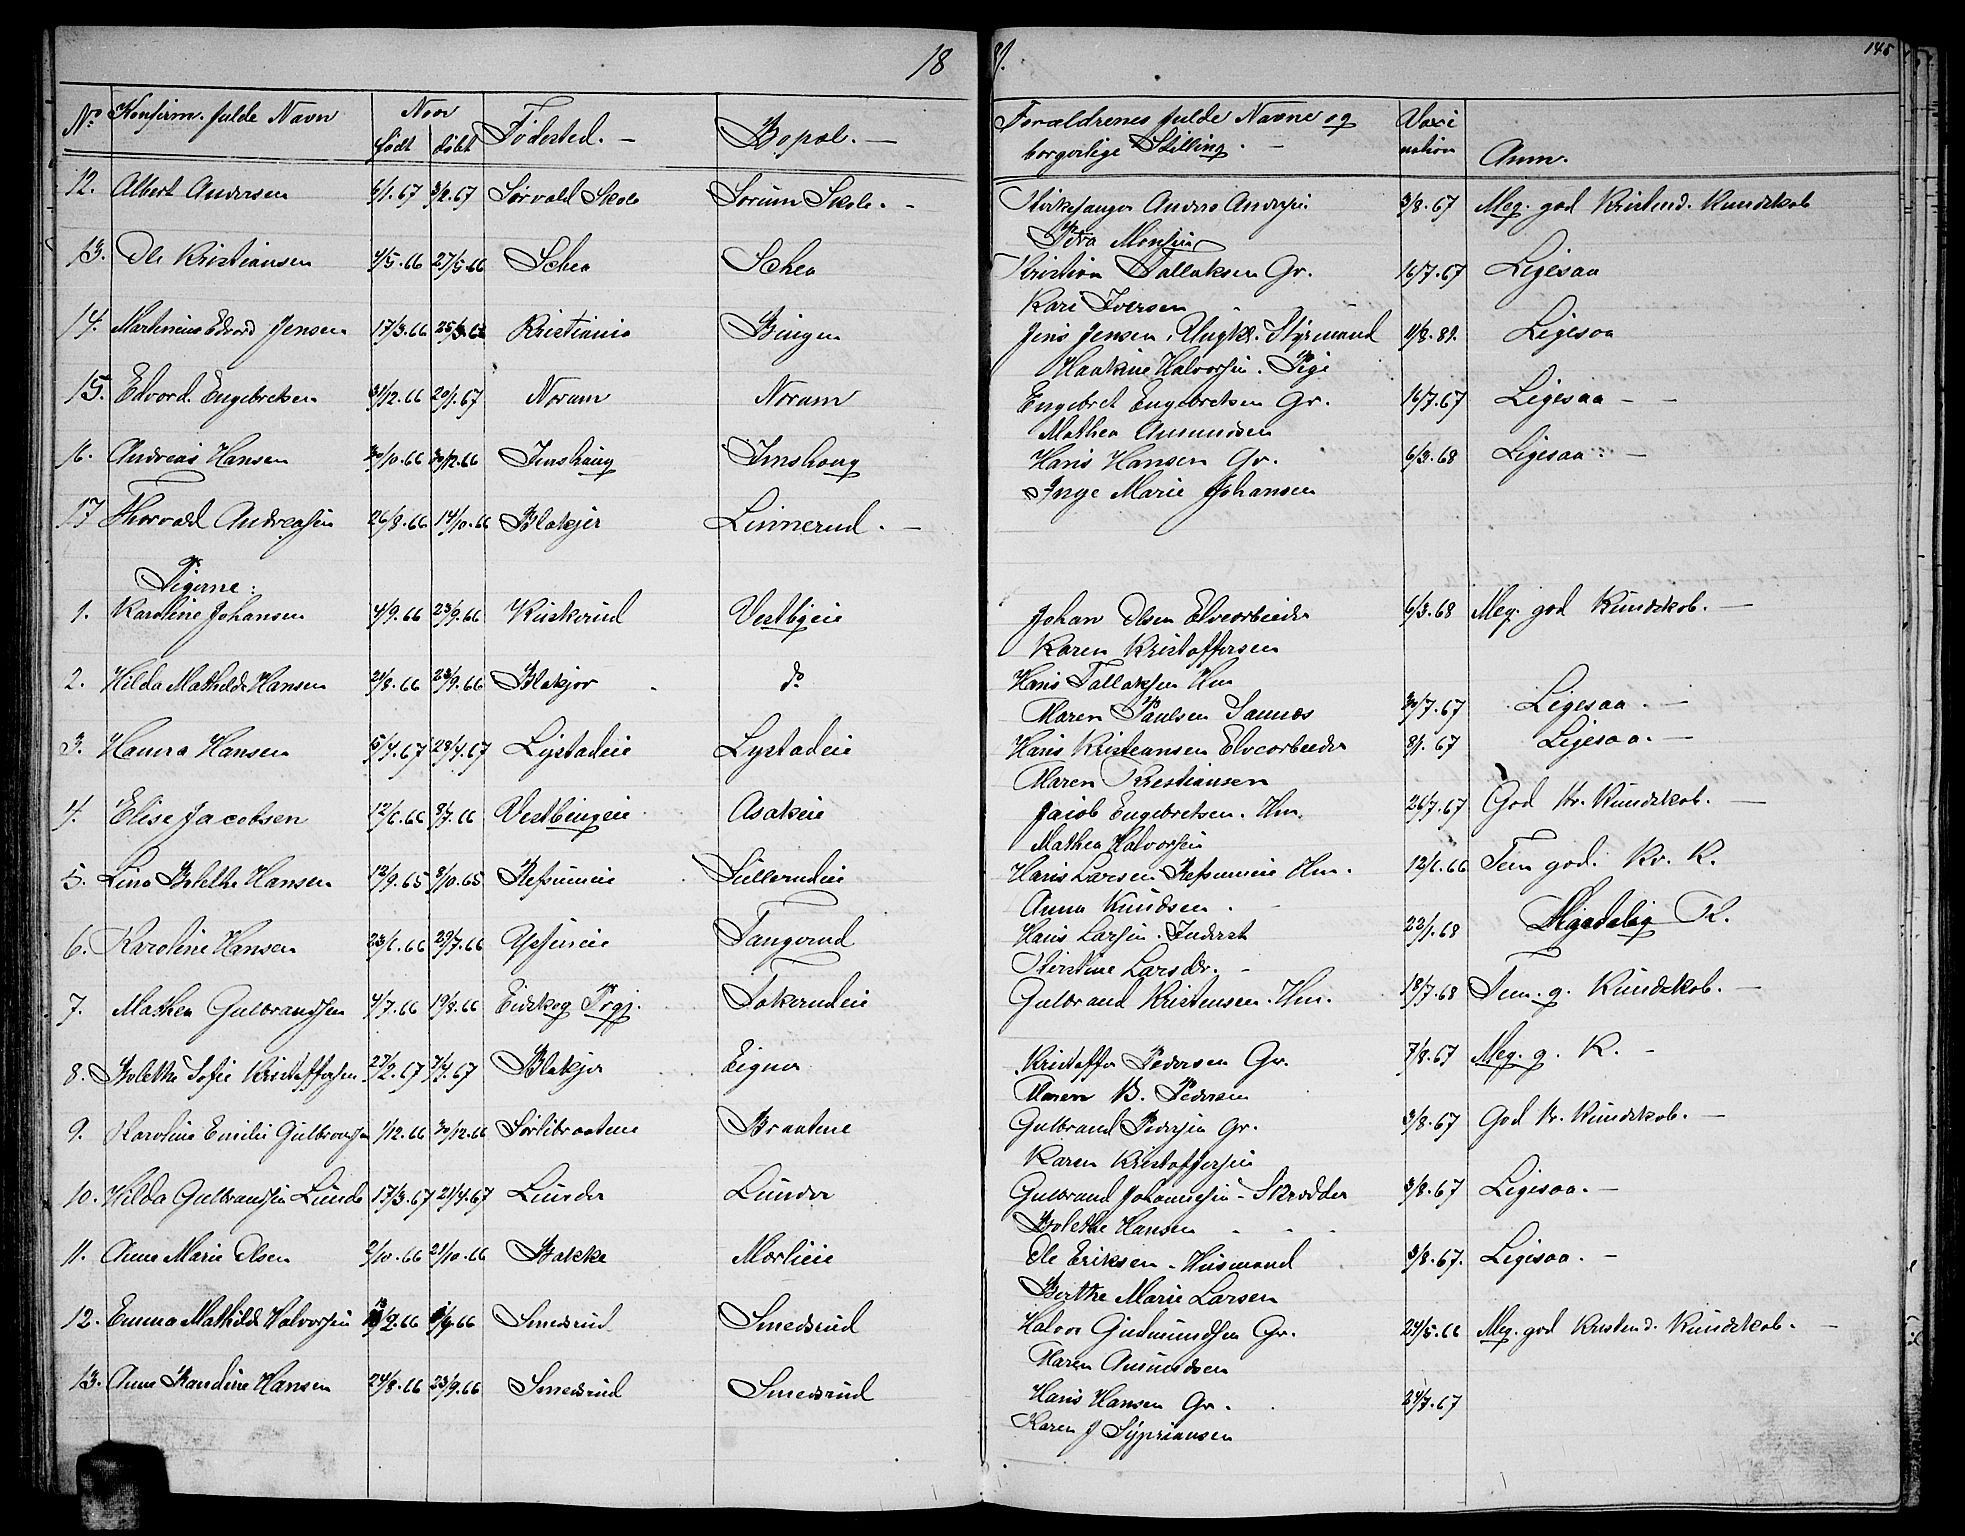 18 81. 145
No. Konfirm. fulde Navn Naar født døbt Fødested. — Bopæl. — Forældrenes fulde Navne og borgerlige Stilling. — Vaxination Anm.
12. Albert Andersen 6/1.67 3/2.67 Sørvald Skole Sørum Skole. — Kirkesanger Anders Andersen 3/8.67 Meg. god Kristend. Kundskab
Monsen
13. Ole Kristiansen 4/5.66 27/5.66 Schea Schea Kristian Tallaksen Gr. 16/7.67 Ligesaa
Kari Iversen
14. Martinius Edvard Jensen 17/3.66 25/3.66 Kristiania Bingen Jens Jensen, Ungk. Styrmand 11/8.81. Ligesaa
Haakine Halvorsen. Pige
15. Edvard Engebretsen 31/12.66 20/1.67 Noram Noram Engebret Engebretsen Gr. 16/7.67 Ligesaa — —
Mathea Amundsen
16. Andreas Hansen 30/10.66 30/12.66 Imshaug Imshaug Hans Hansen Gr. 6/3.68 Ligesaa. —
Inge Marie Johansen
17 Thorvald Andreasen 26/8.66 14/10.66 Blakjer Linnerud. —
Pigerne:
1. Karoline Johansen 4/9.66 23/9.66 Kuskerud Vestbyeie Johan Olsen Elvearbeider 6/3.68 Meg. god Kundskab. —
Karen Kristoffersen
2. Hilda Mathilde Hansen 21/8.66 23/9.66 Blakjer do Hans Tallaksen Hm
Maren Paulsen Sannes 30/7.67 Ligesaa. —
3. Hanna Hansen 5/4.67 28/4.67 Lystadeie Lystadeie Hans Kristiansen Elvearbeider 8/1.67 Ligesaa. —
Maren Kristiansen
4. Elise Jacobsen 12/6.66 8/7.66 Vestbyeie Asakeie Jacob Engebretsen. Hm. 26/7.67 God Kr. Kundskab. —
Mathea Halvorsen
5. Lina Bolethe Hansen 12/9.65 8/10.65 Refsumeie Sillerudeie Hans Larsen Refsumeie Hm. 12/6.66 Tem god. Kr. K.
Anna Knudsen. —
6. Karoline Hansen 23/6.66 29/7.66 Tangerud Hans Larsen. Inderst 22/1.68 Maadelig K.
Kirstine Larsdr. —
7. Mathea Gulbrandsen 4/7.66 19/8.66 Eidskog Prgj. Tokerudeie Gulbrand Kristensen. Hm. 18/7.68 Tem. g. Kundskab. —
8. Bolethe Sofie Kristoffersen 27/2.67 7/4.67 Blakjer Eigner Kristoffer Pedersen Gr. 7/8.67 Meg. g. K. —
Maren B. Pedersen
9. Karoline Emilie Gulbrandsen 1/12.66 30/12.66 Sørlibraatene Braatene Gulbrand Pedersen Gr. 3/8.67 God Kr. Kundskab. —
Karen Kristoffersen
10. Hilda Gulbrandsen Lunde 17/3.67 21/4.67 Lunder Lunder Gulbrand Johannesen - Skrædder 3/8.67 Ligesaa. —
Bolethe Hansen
11. Anne Marie Olsen 2/10.66 21/10.66 Bakke Mørlieie Ole Eriksen - Husmand 3/8.67. Ligesaa. —
Berthe Marie Larsen
12. Emma Mathilde Halvorsen Smedsrud Smedsrud Halvor Gudmundsen Gr. 24/5.66 Meg. god Kristend. Kundskab. —
Maren Amundsen
13. Anne Randine Hansen 24/8.66 23/9.66 Smedsrud Smedsrud Hans Hansen Gr. 24/7.67
Karen J Sypriansen